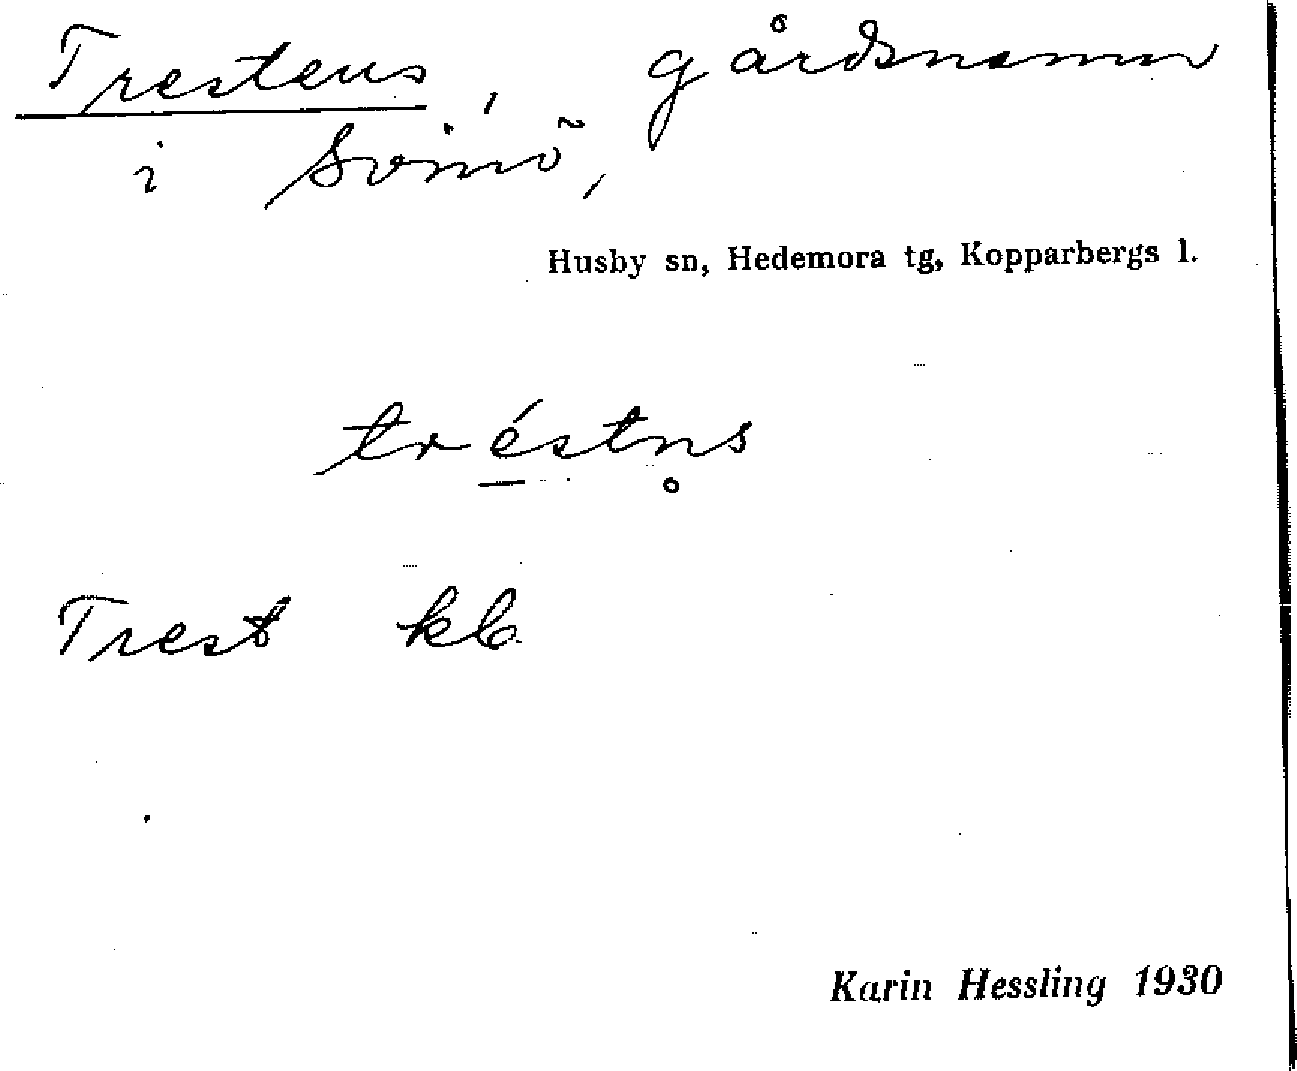 Trestens, gårdsnamn
i Svinö,
Husby sn, Hedemora tg, Kopparbergs l.
tréstn̥s
Trest kb
Karin Hessling 1930